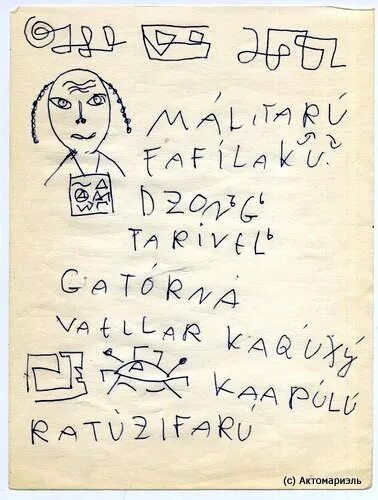 MÁLITARÚ
FAFÍLAKÚ
DZONЪGЪ
TARIVELЪ
GATÓRNÁ
VAELLAR KAQÚXÝ
KAAPÚLÚ
RATÚZIFARÚ
(c) Актомариэль